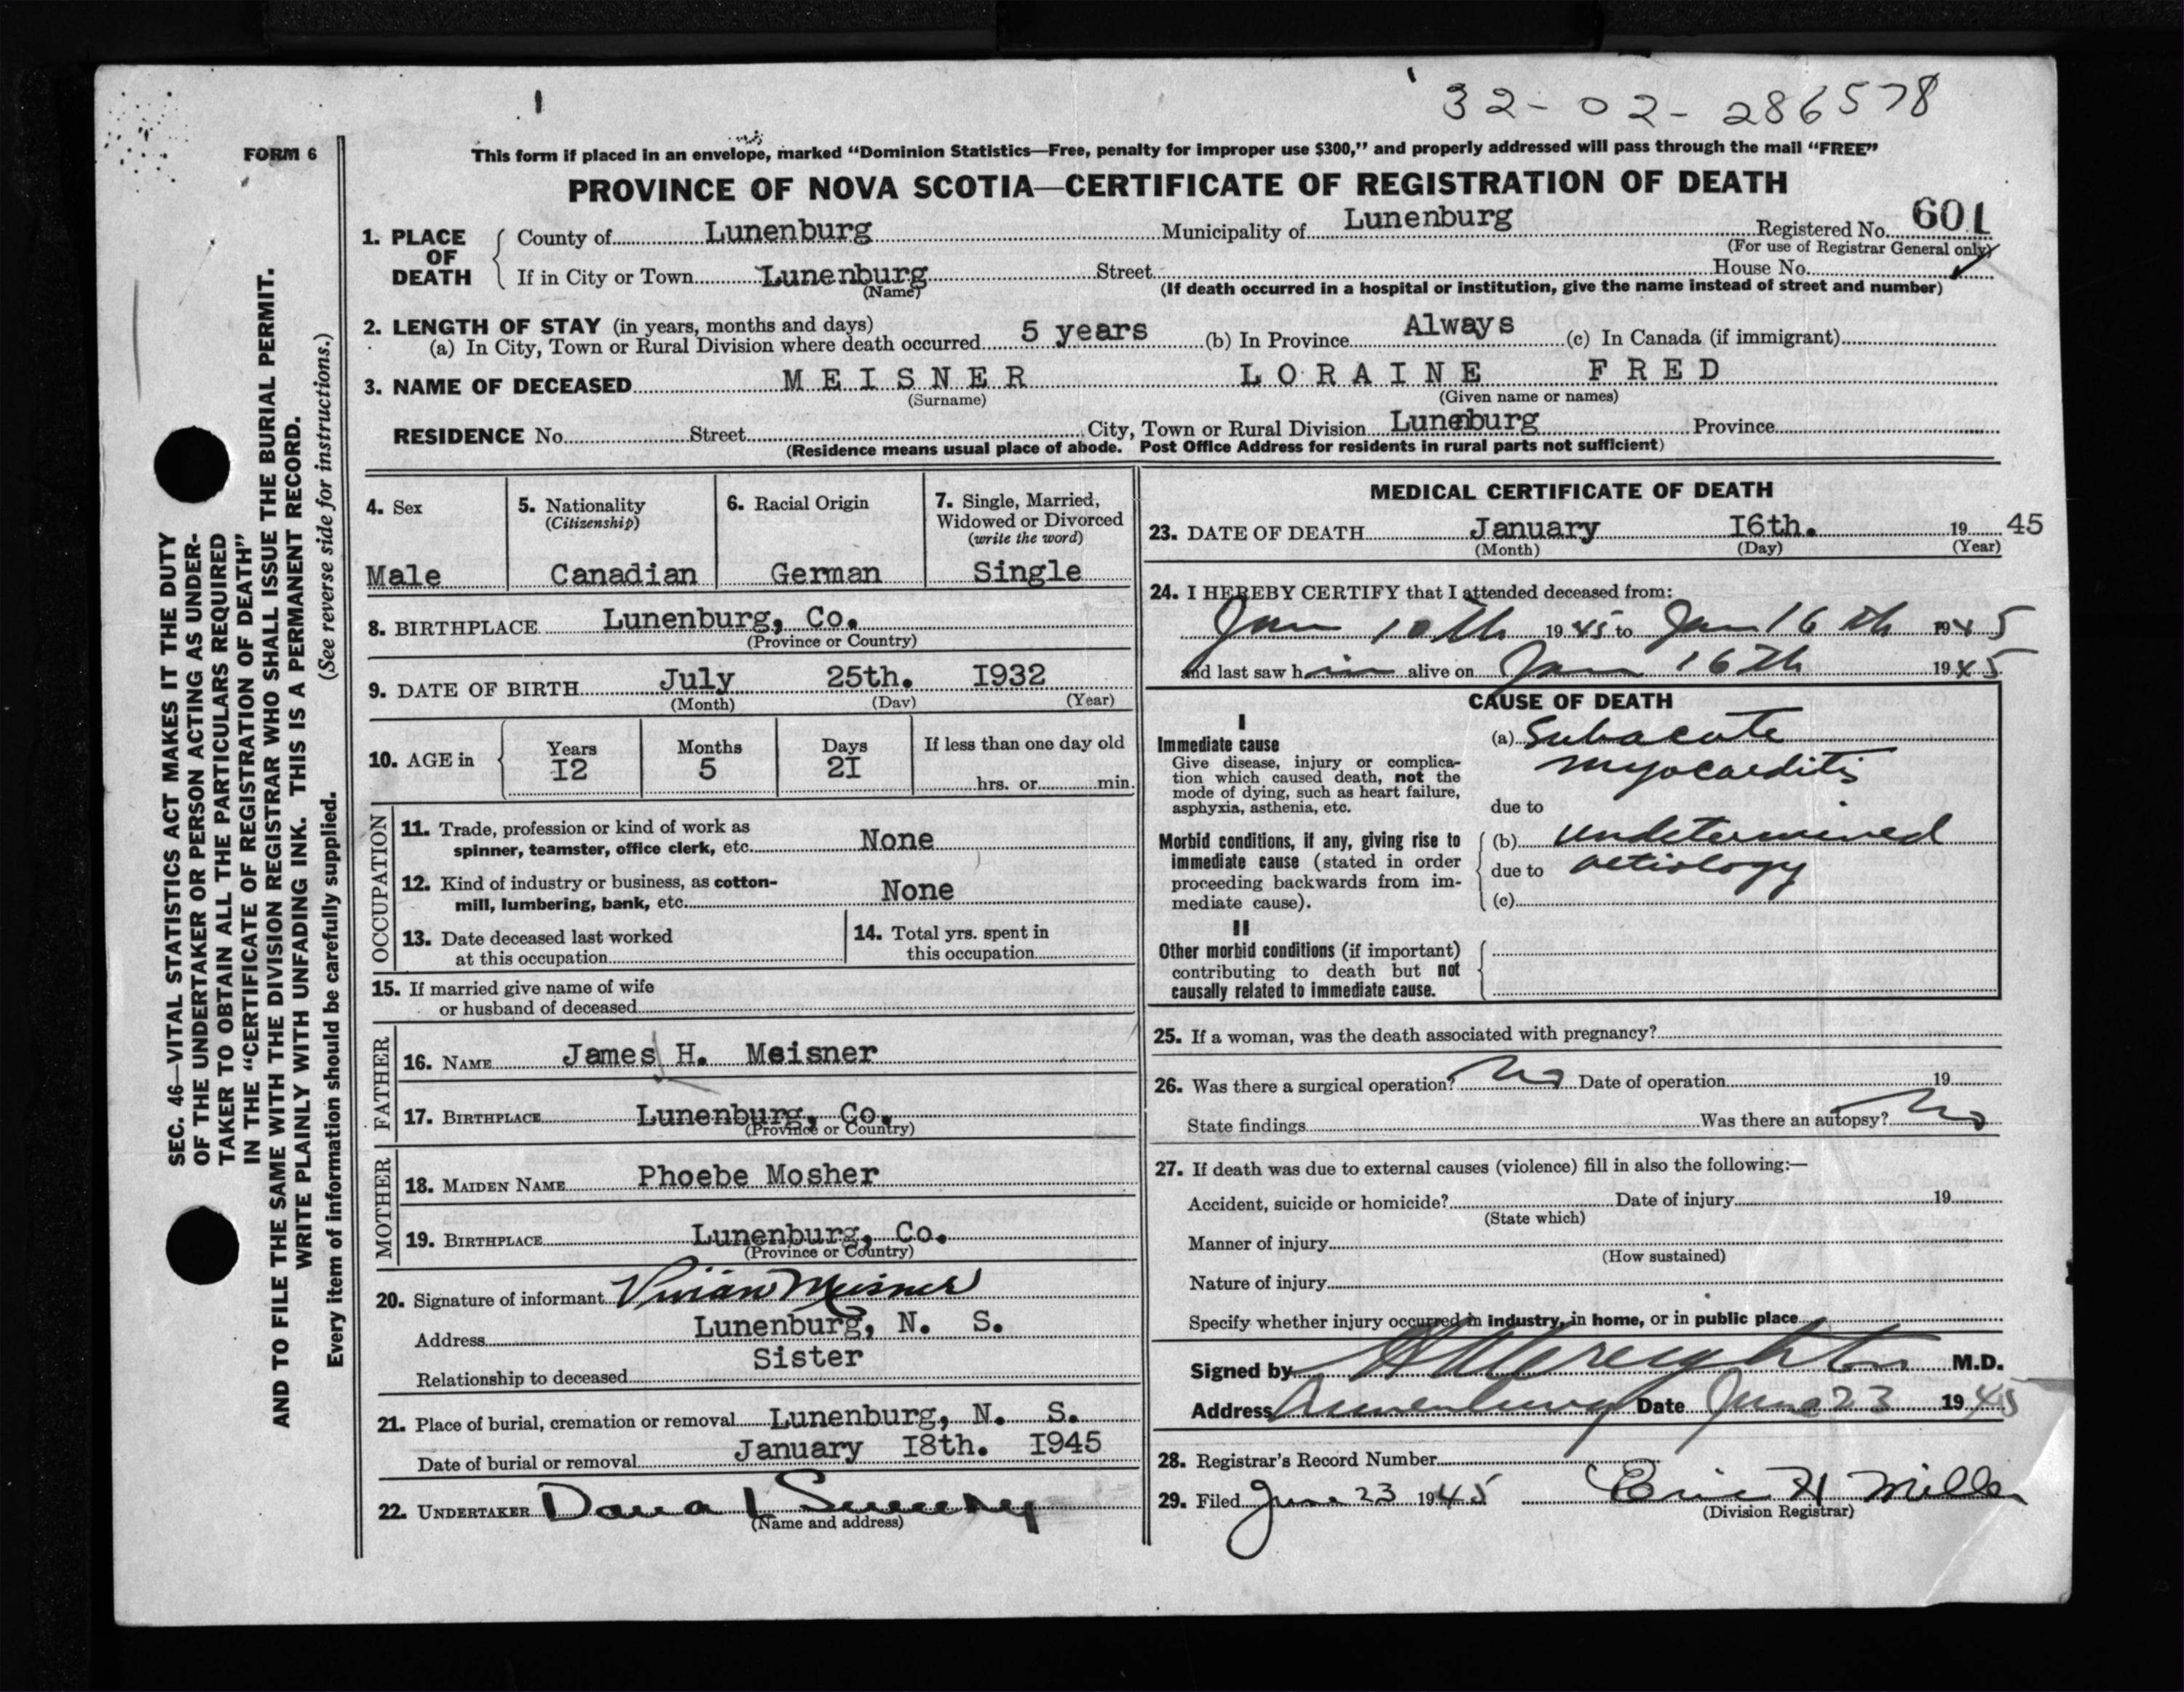 32-02-286578
FORM 6
This form if placed in an envelope, marked "Dominion Statistics—Free, penalty for improper use $300," and properly addressed will pass through the mail "FREE"
PROVINCE OF NOVA SCOTIA—CERTIFICATE OF REGISTRATION OF DEATH
1. PLACE OF DEATH County of Lunenburg Municipality of Lunenburg Registered No. 601
(For use of Registrar General only)
If in City or Town Lunenburg Street House No.
(Name) (If death occurred in a hospital or institution, give the name instead of street and number)
2. LENGTH OF STAY (in years, months and days)
(a) In City, Town or Rural Division where death occurred 5 years (b) In Province Always (c) In Canada (if immigrant)
3. NAME OF DECEASED MEISNER LORAINE FRED
(Surname) (Given name or names)
RESIDENCE No. Street City, Town or Rural Division Lunenburg Province
(Residence means usual place of abode. Post Office Address for residents in rural parts not sufficient)
4. Sex
Male
5. Nationality
(Citizenship)
Canadian
6. Racial Origin
German
7. Single, Married,
Widowed or Divorced
(write the word)
Single
8. BIRTHPLACE Lunenburg, Co.
(Province or Country)
9. DATE OF BIRTH July 25th. I932
(Month) (Day) (Year)
10. AGE in
Years Months Days If less than one day old
I2 5 2I hrs. or min.
OCCUPATION
11. Trade, profession or kind of work as
spinner, teamster, office clerk, etc. None
12. Kind of industry or business, as cotton-
mill, lumbering, bank, etc. None
13. Date deceased last worked
at this occupation
14. Total yrs. spent in
this occupation
15. If married give name of wife
or husband of deceased
FATHER
16. NAME James H. Meisner
17. BIRTHPLACE Lunenburg, Co.
(Province or Country)
MOTHER
18. MAIDEN NAME Phoebe Mosher
19. BIRTHPLACE Lunenburg, Co.
(Province or Country)
20. Signature of informant Vivian Meisner
Address Lunenburg, N. S.
Relationship to deceased Sister
21. Place of burial, cremation or removal Lunenburg, N. S.
Date of burial or removal January I8th. I945
22. UNDERTAKER Dana L Sweeny
(Name and address)
MEDICAL CERTIFICATE OF DEATH
23. DATE OF DEATH January I6th. 19 45
(Month) (Day) (Year)
24. I HEREBY CERTIFY that I attended deceased from:
Jan 10th 1945 to Jan 16th 1945
and last saw him alive on Jan 16th 1945
CAUSE OF DEATH
I
Immediate cause
Give disease, injury or complica-
tion which caused death, not the
mode of dying, such as heart failure,
asphyxia, asthenia, etc.
(a) Subacute
myocarditis
due to
Morbid conditions, if any, giving rise to
immediate cause (stated in order
proceeding backwards from im-
mediate cause).
(b) undetermined
due to aetiology
(c)
II
Other morbid conditions (if important)
contributing to death but not
causally related to immediate cause.
25. If a woman, was the death associated with pregnancy?
26. Was there a surgical operation? No Date of operation 19
State findings Was there an autopsy? No
27. If death was due to external causes (violence) fill in also the following:—
Accident, suicide or homicide? Date of injury 19
(State which)
Manner of injury
(How sustained)
Nature of injury
Specify whether injury occurred in industry, in home, or in public place
Signed by Creighton M.D.
Address Lunenburg Date June 23 1945
28. Registrar's Record Number
29. Filed June 23 1945 Eric H Miller
(Division Registrar)
SEC. 46—VITAL STATISTICS ACT MAKES IT THE DUTY
OF THE UNDERTAKER OR PERSON ACTING AS UNDER-
TAKER TO OBTAIN ALL THE PARTICULARS REQUIRED
IN THE "CERTIFICATE OF REGISTRATION OF DEATH"
AND TO FILE THE SAME WITH THE DIVISION REGISTRAR WHO SHALL ISSUE THE BURIAL PERMIT.
WRITE PLAINLY WITH UNFADING INK. THIS IS A PERMANENT RECORD.
Every item of information should be carefully supplied. (See reverse side for instructions.)